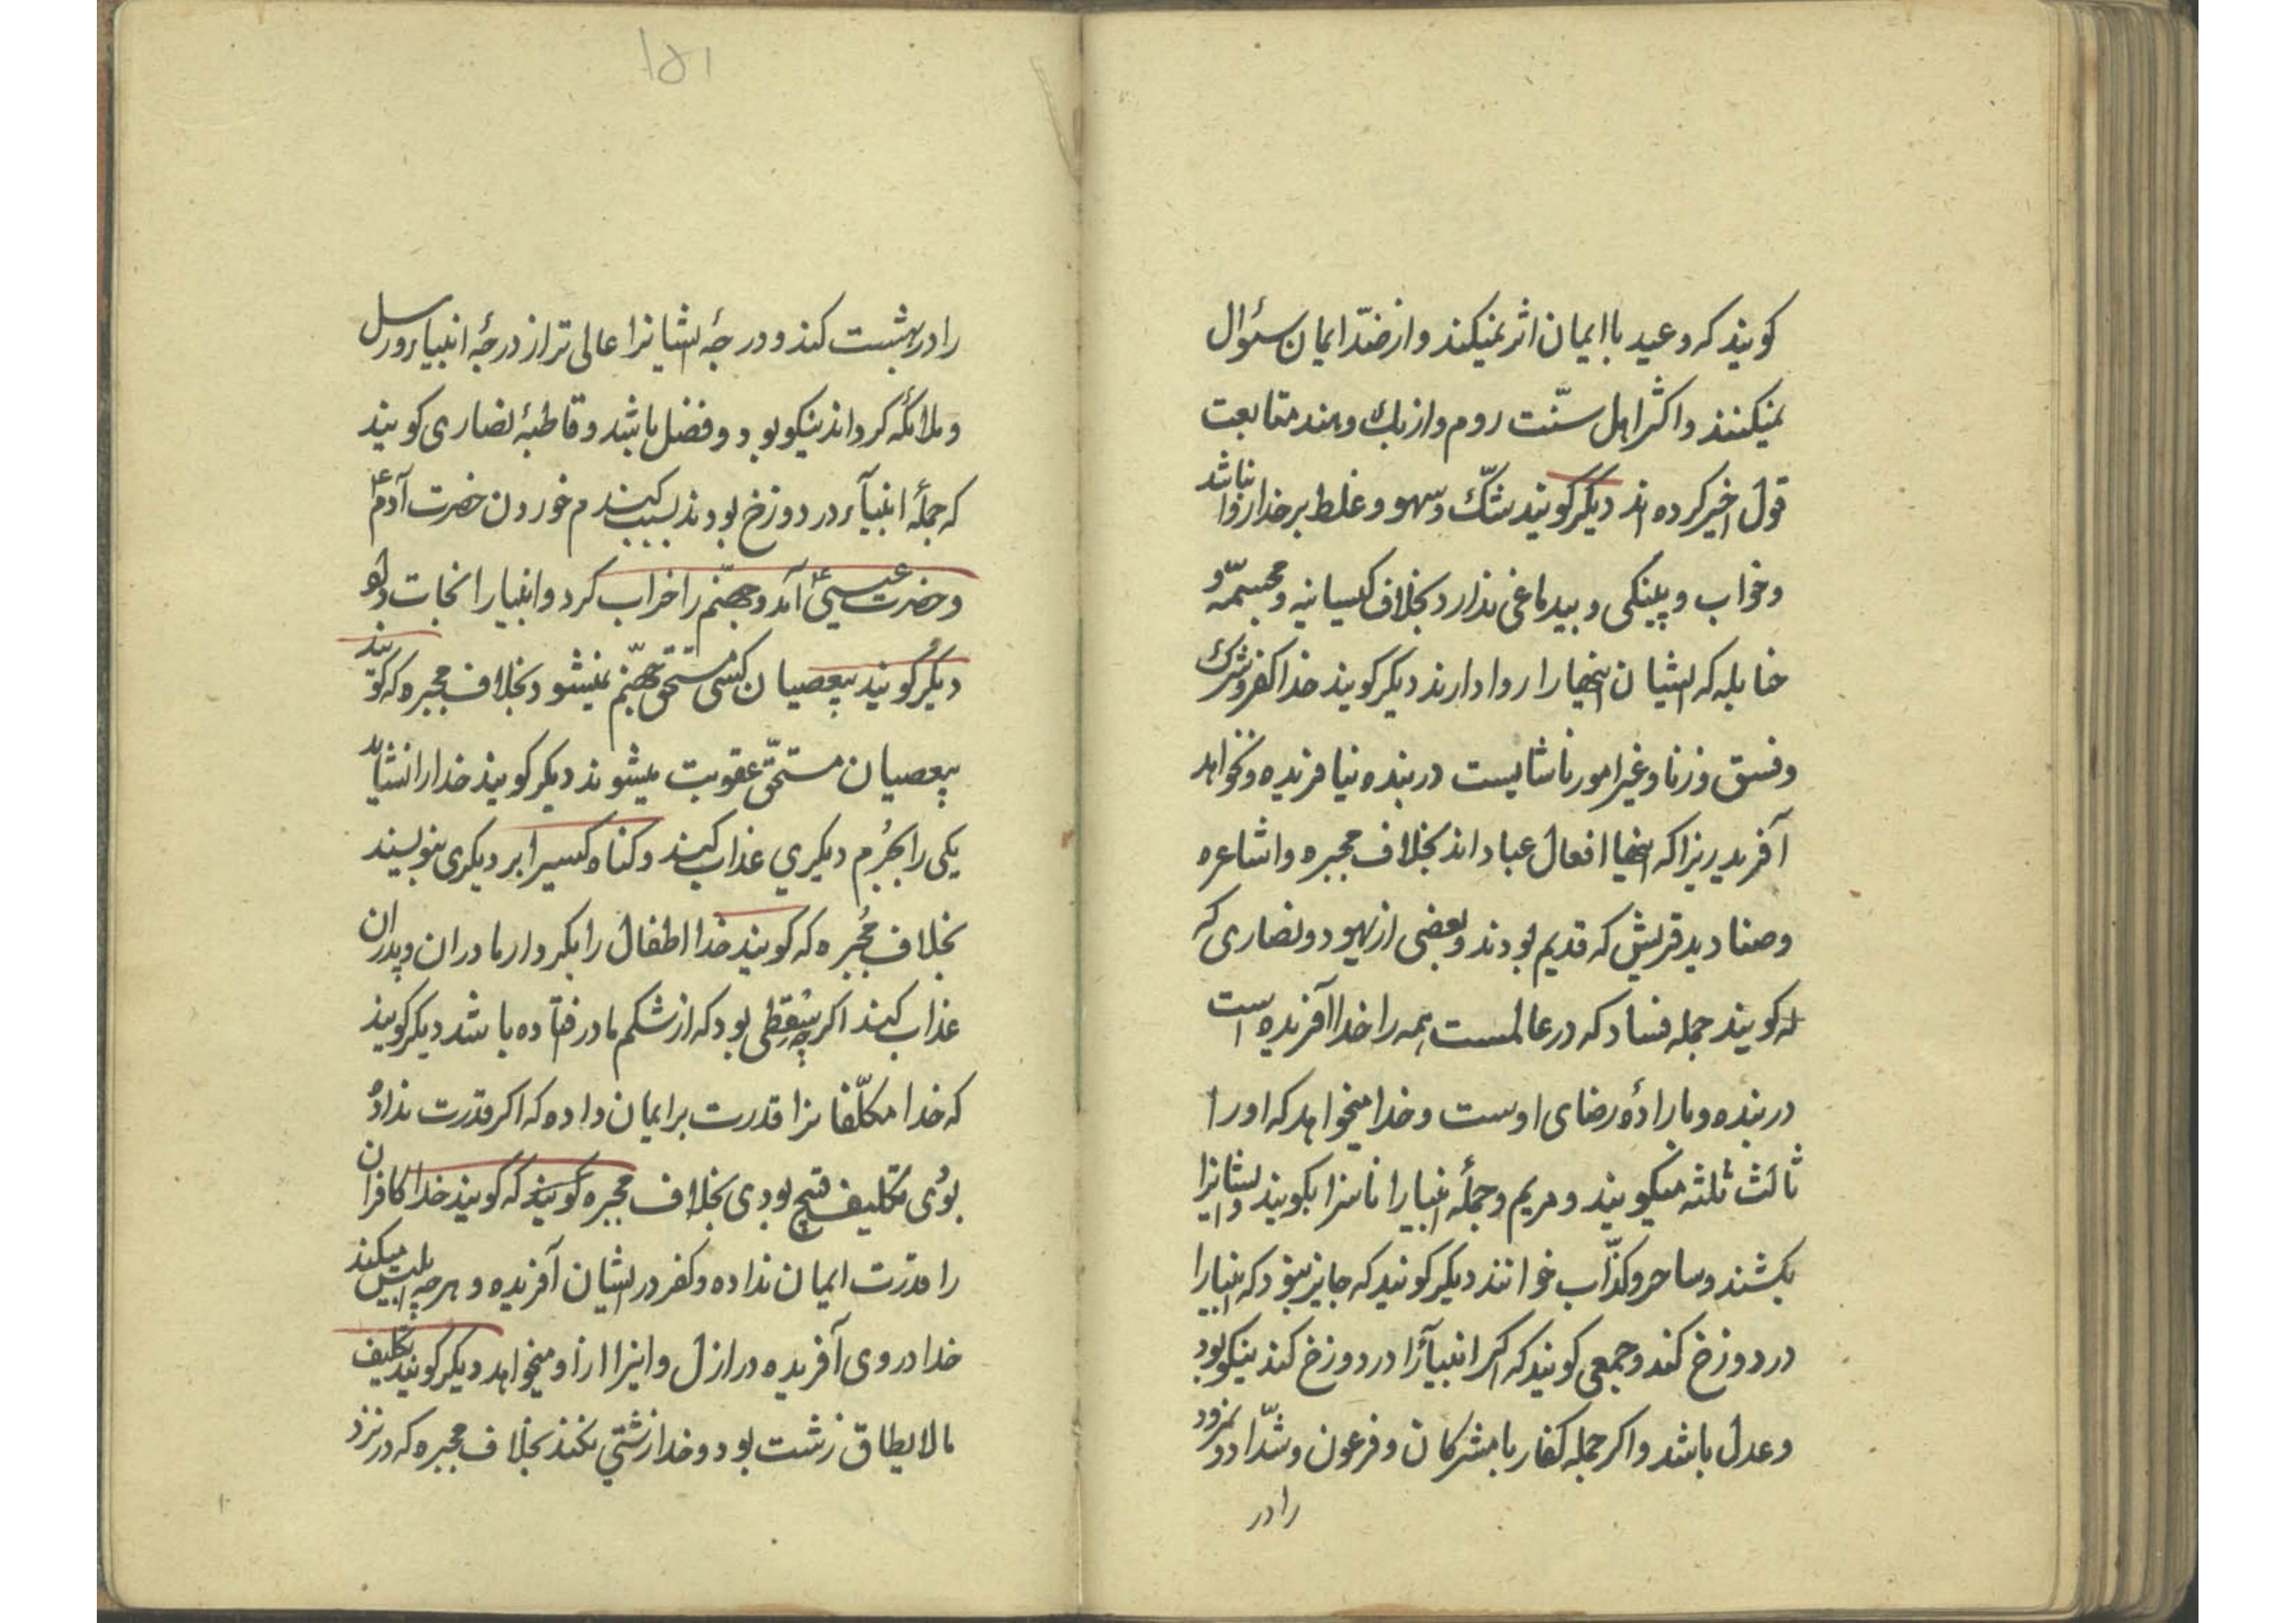 کویند که وعید با ایمان اثر نمیکند و از ضدّ ایمان سئوال
نمیکنند و اکثر اهل سنّت روم و ازبك و هند متابعت
قول اخیر کرده اند دیکر کویند شکّ و سهو و غلط بر خدا روا نباشد
و خواب و پینکی و بیدماغی ندارد بخلاف کیسانیه و مجسمّه و
حنابله که ایشان اینها را روا دارند دیکر کویند خدا کفر و شرك
و فسق و زنا و غیر امور ناشایست در بنده نیافریده و نخواهد
آفرید زیرا که اینها افعال عباد اند بخلاف مجبره و اشاعره
و صنادید قریش که قدیم بودند و بعضی از یهود و نصاری که
که کویند جمله فساد که در عالمست همه را خدا آفریده است
در بنده و باراده رضای اوست و خدا میخواهد که او را
ثالث ثلثه میکویند و مریم و جملهٔ انبیا را ناسزا بکویند و ایشانرا
بکشند و ساحر و کذّاب خوانند دیکر کویند که جایز نبود که انبیا را
در دوزخ کند و جمعی کویند که اکر انبیآء را در دوزخ کند نیکو بود
و عدل باشد و اکر جمله کفار با مشرکان و فرعون و شدّاد و نمرود
را در
۱۵۱
را در بهشت کند و درجهٔ ایشانرا عالی تر از درجهٔ انبیاء و رسل
و ملائکه کرداند نیکو بود و فضل باشد و قاطبهٔ نصاری کویند
که جملهٔ انبیآء در دوزخ بودند بسبب کندم خوردن حضرت آدم ع
و حضرت عیسی ع آمد و جهنّم را خراب کرد و انبیا را نجات داد
دیکر کویند بیعصیان کسی مستحق جهنّم نمیشود بخلاف مجبره که کویند
بیعصیان مستحقّ عقوبت میشوند دیکر کویند خدا را نشاید
یکی را بجُرم دیکری عذاب کند و کناه کسیرا بر دیکری بنویسند
بخلاف مُجبره که کویند خدا اطفال را بکردار مادران و پدران
عذاب کند اکرچه سِقطی بود که از شکم مادر فتاده باشد دیکر کویند
که خدا مکلّفانرا قدرت بر ایمان داده که اکر قدرت نداده
بودی تکلیف قبیح بودی بخلاف مجبره کویند که کویند خدا کافران
را قدرت ایمان نداده و کفر در ایشان آفریده و هرچه ابلیس میکند
خدا در وی آفریده در ازل و اینرا از او میخواهد دیکر کویند تکلیف
ما لا یطاق زشت بود و خدا زشتی نکند بخلاف مجبره که در نزد